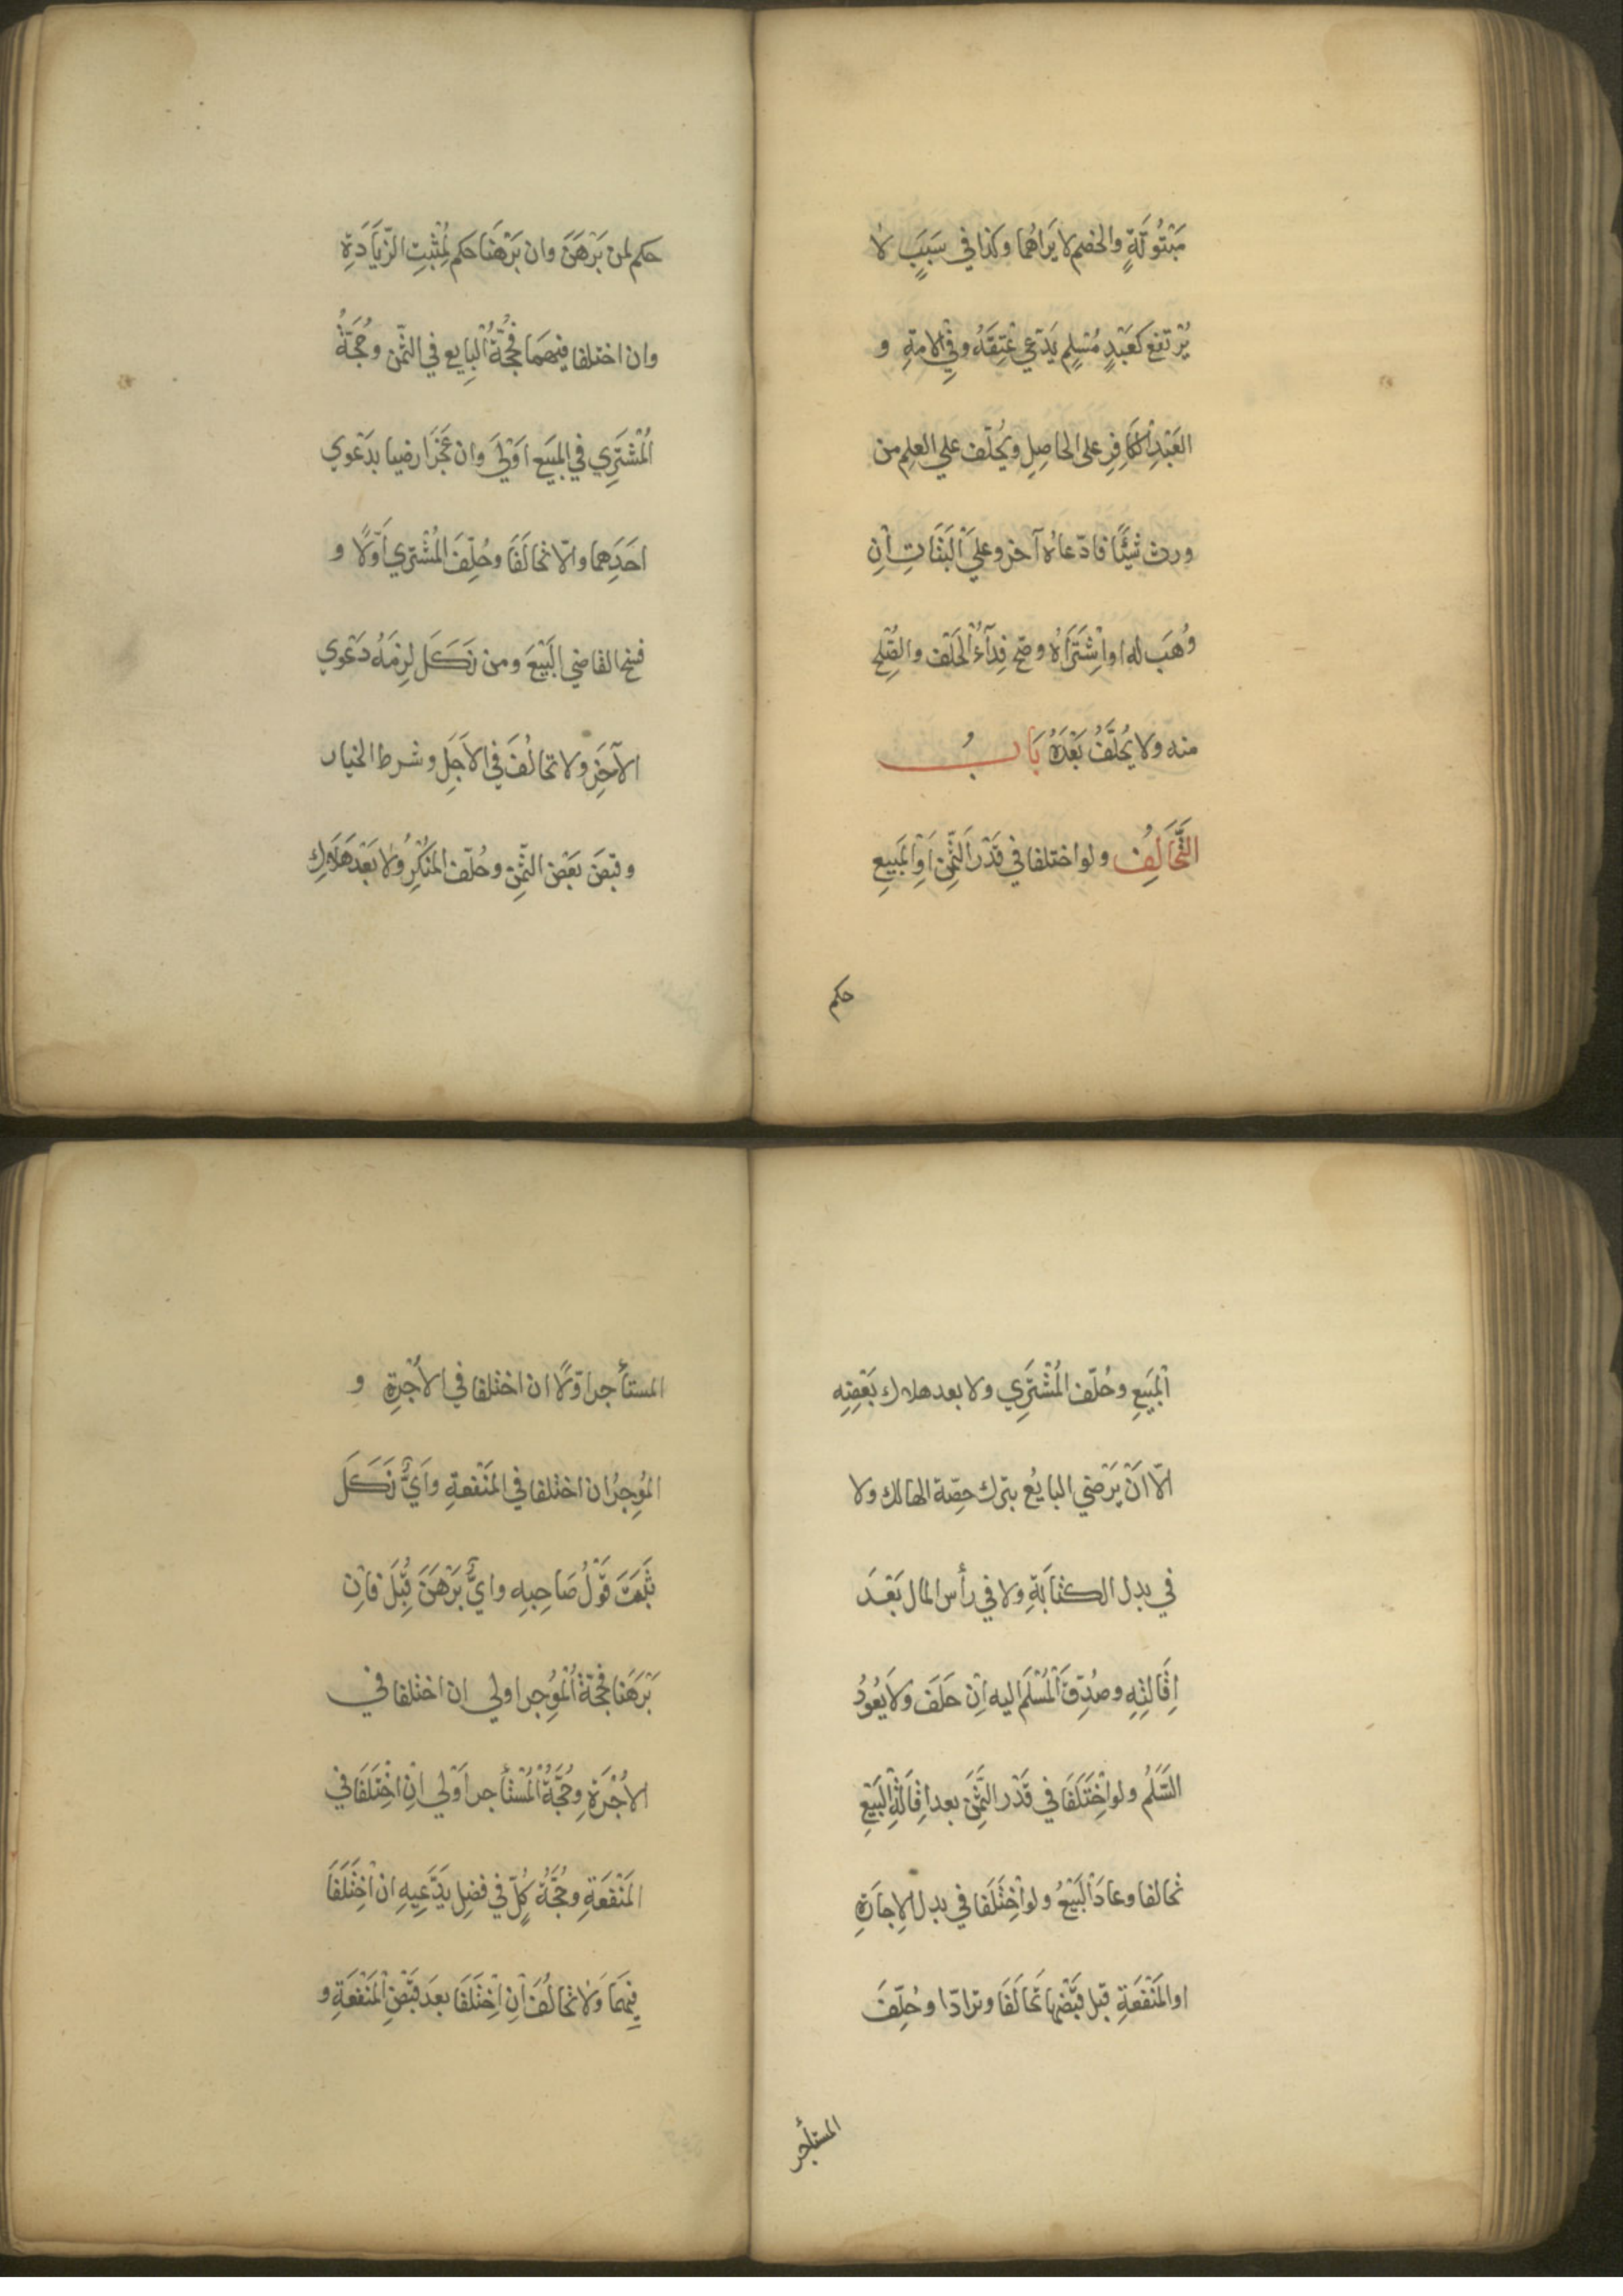 مَبْتُوتَةٍ والخصم لا يَراهُما وكذا في سَبَبٍ لا
يُرْتفع كعَبْدٍ مُسْلِمٍ يَدّعي عْتِقَهُ وفي الامةِ و
العَبْدِ الكَافِرِ على الحاصِلِ ويُحلّف علي العلِم من
ورث شيْئًا فادّعاهُ آخر وعليَ الْبَتَاتِ اِن
وُهَب له اواشْتَرَاهُ وصح فِدآءُ الْحَلْف والصُّلح
منه ولا يُحلَّفُ بَعْدَهُ بَابُ
التَّحَالُفِ ولو اختلفا في قَدْر الثَّمِن اَوِ المَبيعِ
حكم
حكم لمن بَرْهَنَ وان بَرْهَنَا حكم لِمُثْبِتِ الزّيَادَةِ
وان اختلفا فيهمَا فحُجّةُ الْبايِع في الثّمن وحُجَّةُ
الْمُشْتَرِي في المبَيع اَوْليَ وان عَجَزَا رضيا بدَعْوي
احَدِهما والّا تحالَفَا وحُلِّفَ المُشْتري اَوّلًا و
فسخ القاضي البَيْعَ ومن نَكَلَ لزِمَهُ دَعْوي
الآخَرِ ولا تحالُفَ في الاَجَلِ وشرط الخيار
وقبْضَ بَعْض الثّمِن وحُلّف المنْكِرُ ولا بَعْد هَلاكِ
الْمَبَيعِ وحُلّف المُشْتَرِي ولا بعد هلاك بَعْضِه
الّا اَنْ يَرْضي البايعُ بترك حِصّة الهالك ولا
في بدل الكتابَةِ ولا في رأس المال بَعْدَ
اِقَالتِهِ وصُدِّقَ الْمُسْلَم اليه اِنْ حَلَفَ ولا يَعُودُ
السَّلَمُ ولو اخْتَلَفَا في قَدْر الثَّمِنَ بعد اِقَالَةِ الْبَيْعِ
تحالفا وعادَ الْبَيْعُ ولو اخْتَلَفا في بدل الاِجارَةِ
او المَنْفَعَةِ قبْل قبْضها تَحَالَفَا وترادّا وحُلِّفَ
المستأجر
المستأجر اوّلًا ان اختلفا في الاُجْرِةِ و
المُوِجرُ ان اختلفا في المَنْفعةِ واَيٌّ نَكَلَ
ثَبَتَ قَوْلُ صَاحِبِهِ وايٌّ بَرْهَنَ قُبِلَ فاِن
بَرْهَنا فحجّة الْمُوِجر اولي ان اختلفا في
الاُجْرَةِ وحُجَّةُ الْمُسْتأجر اَوْلي اِنِ اخْتَلَفَا في
المَنْفَعَةِ وحُجَّةُ كُلٍّ في فضِلِ يَدَّعِيهِ ان اخْتَلَفَا
فيهمَا وَلا تحالُفَ اِن اِخْتَلَفَا بعدَ قبْضِ الْمَنْفَعَةِ و